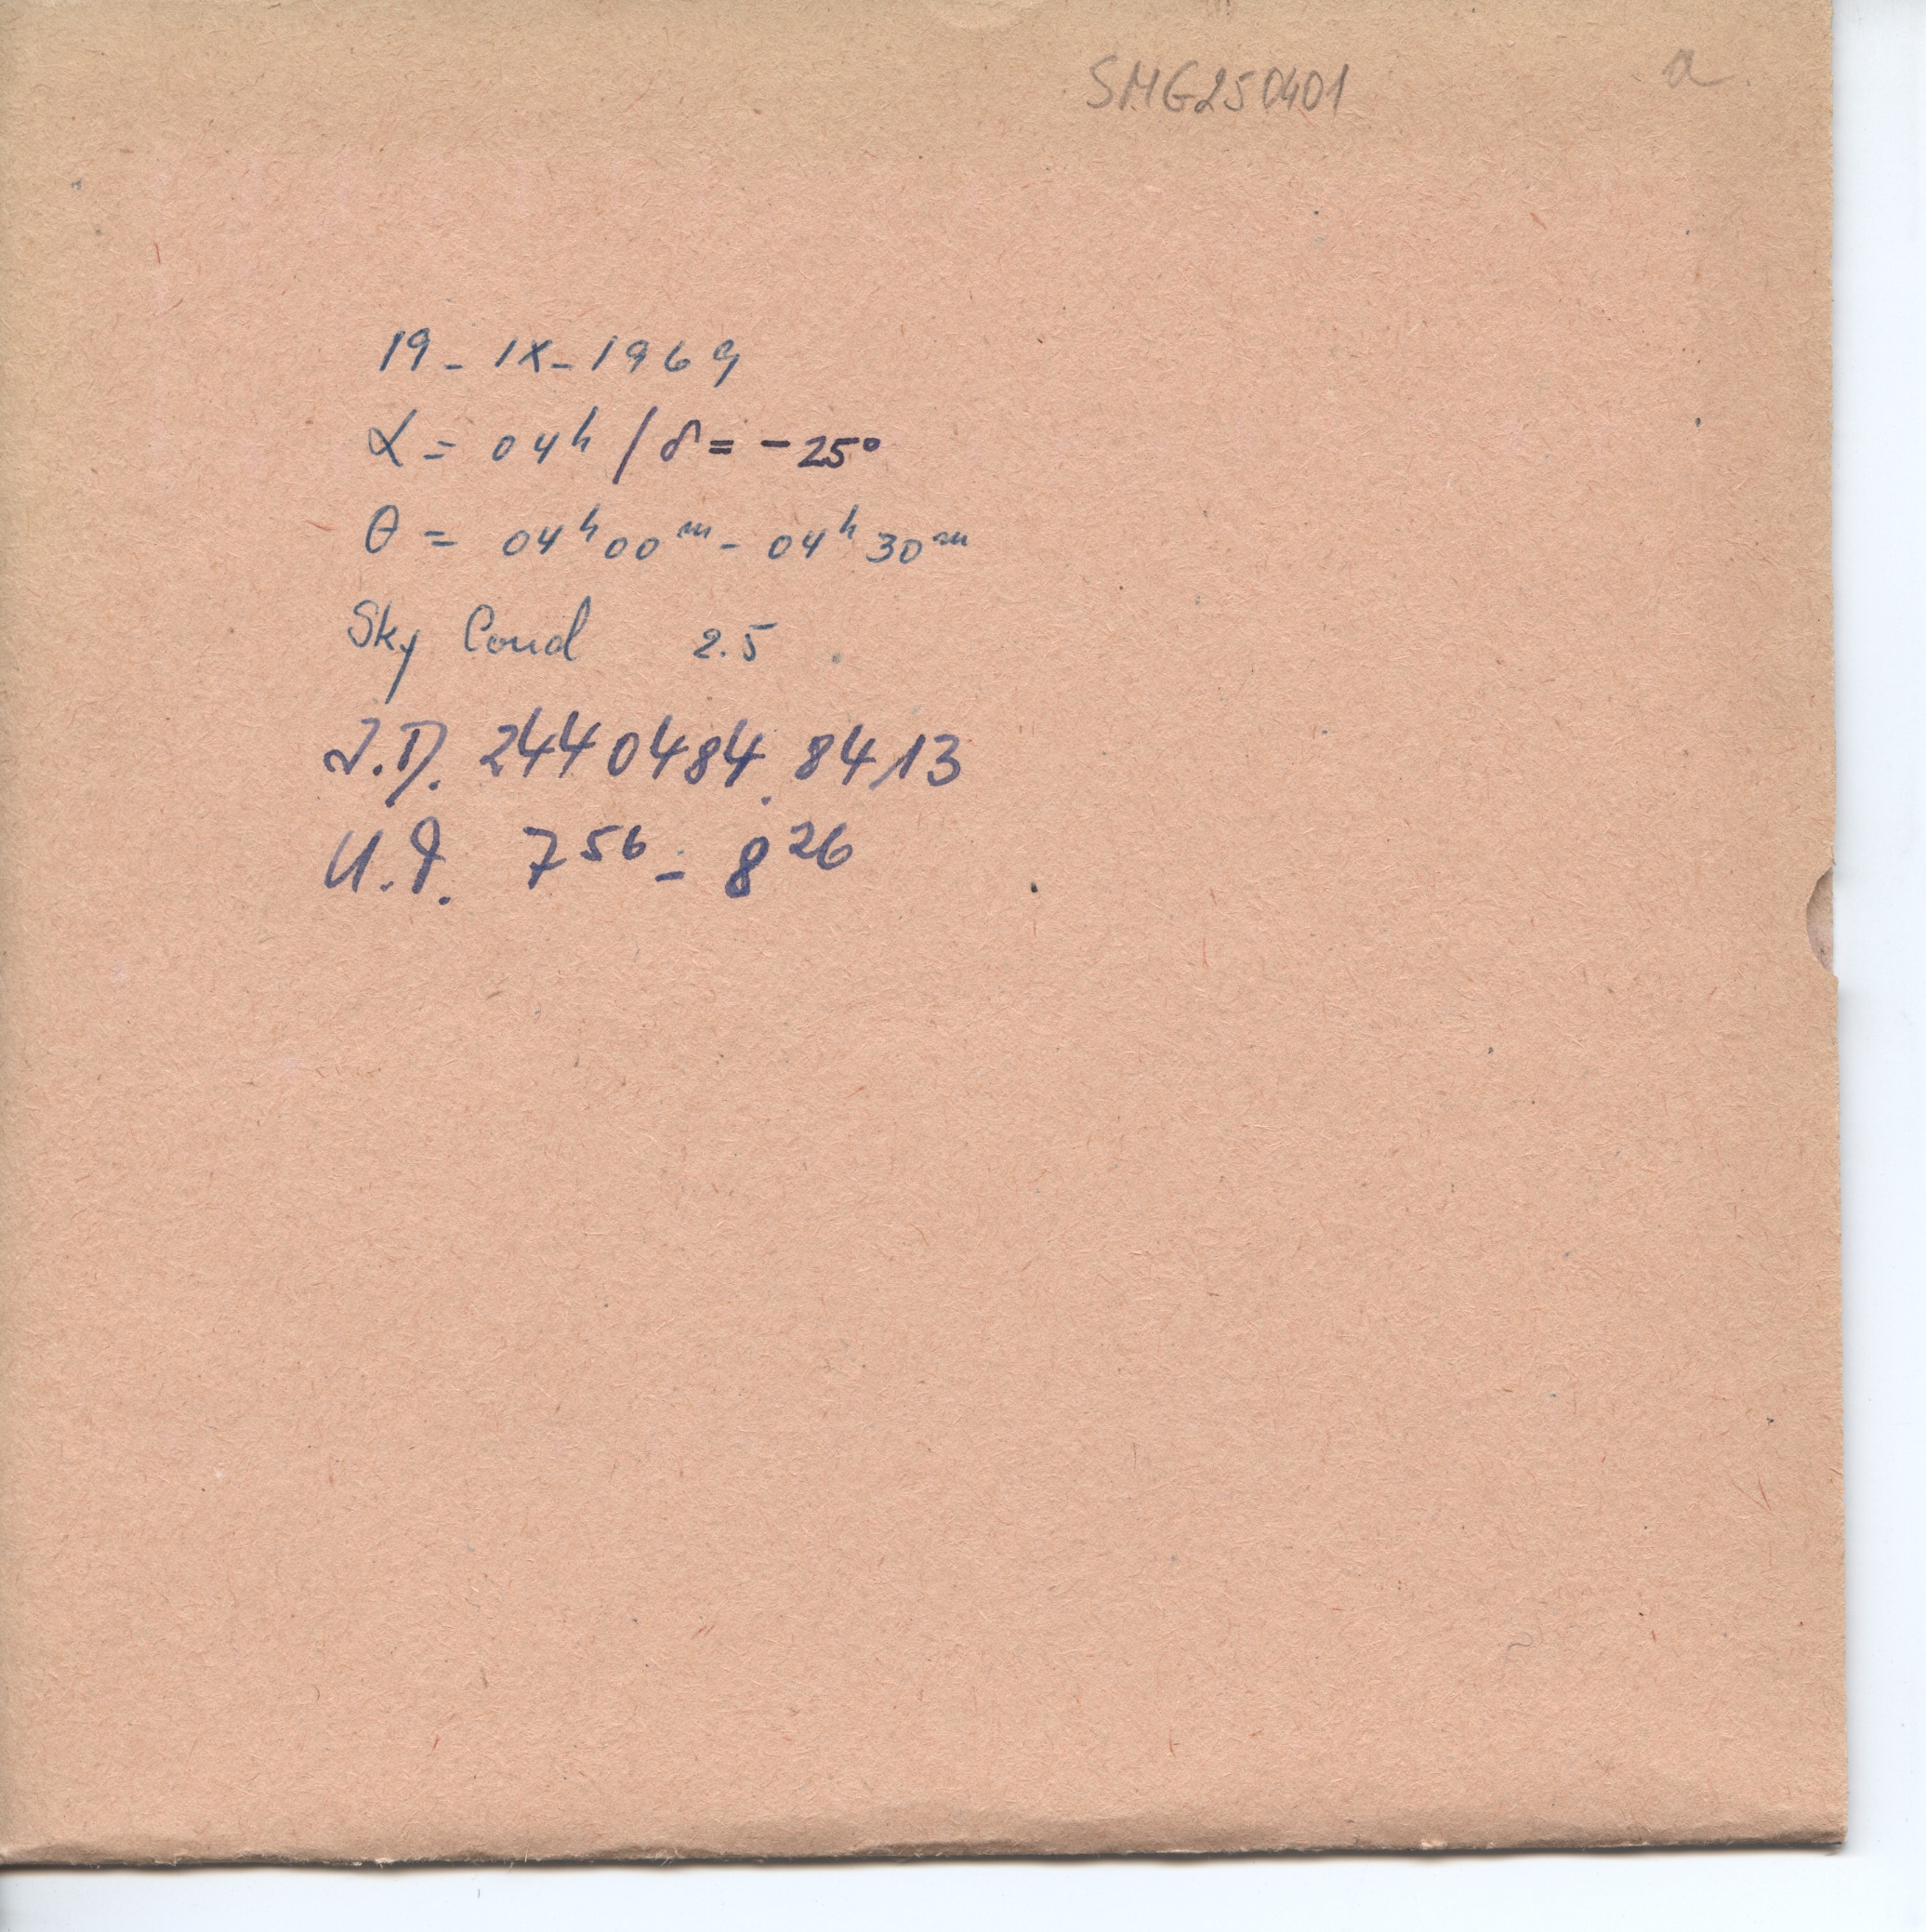 SMG250401 a
19 - IX - 1969
α = 04ʰ / δ = -25°
θ = 04ʰ00ᵐ - 04ʰ30ᵐ
Sky Cond 2.5
J.D. 2440484.8413
U.T. 7⁵⁶ - 8²⁶